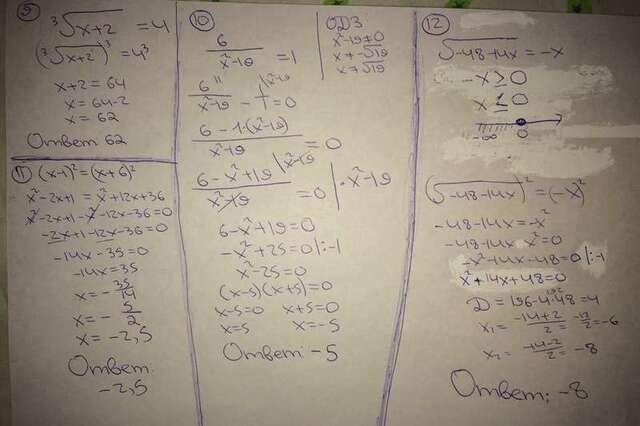 9
³√x+2 = 4
(³√x+2)³ = 4³
x+2 = 64
x = 64-2
x = 62
Ответ 62
11 (x-1)² = (x+6)²
x²-2x+1 = x²+12x+36
x²-2x+1-x²-12x-36=0
-2x+1-12x-36=0
-14x-35=0
-14x=35
x = -35/14
x = -5/2
x = -2,5
Ответ:
-2,5
10
6/(x²-19) = 1
ОДЗ
x²-19≠0
x≠-√19
x≠√19
6/(x²-19) - 1 = 0
(6-1·(x²-19))/(x²-19) = 0
(6-x²+19)/(x²-19) = 0 | ·x²-19
6-x²+19=0
-x²+25=0 |:-1
x²-25=0
(x-5)(x+5)=0
x-5=0 x+5=0
x=5 x=-5
Ответ: -5
12
√-48-14x = -x
-x≥0
x≤0
-∞ 0
(√-48-14x)² = (-x)²
-48-14x=-x²
-48-14x x²=0
-x²-14x-48=0 |:-1
x²+14x+48=0
D = 196-4·48=4
x₁ = (-14+2)/2 = -12/2 = -6
x₂ = (-14-2)/2 = -8
Ответ: -8